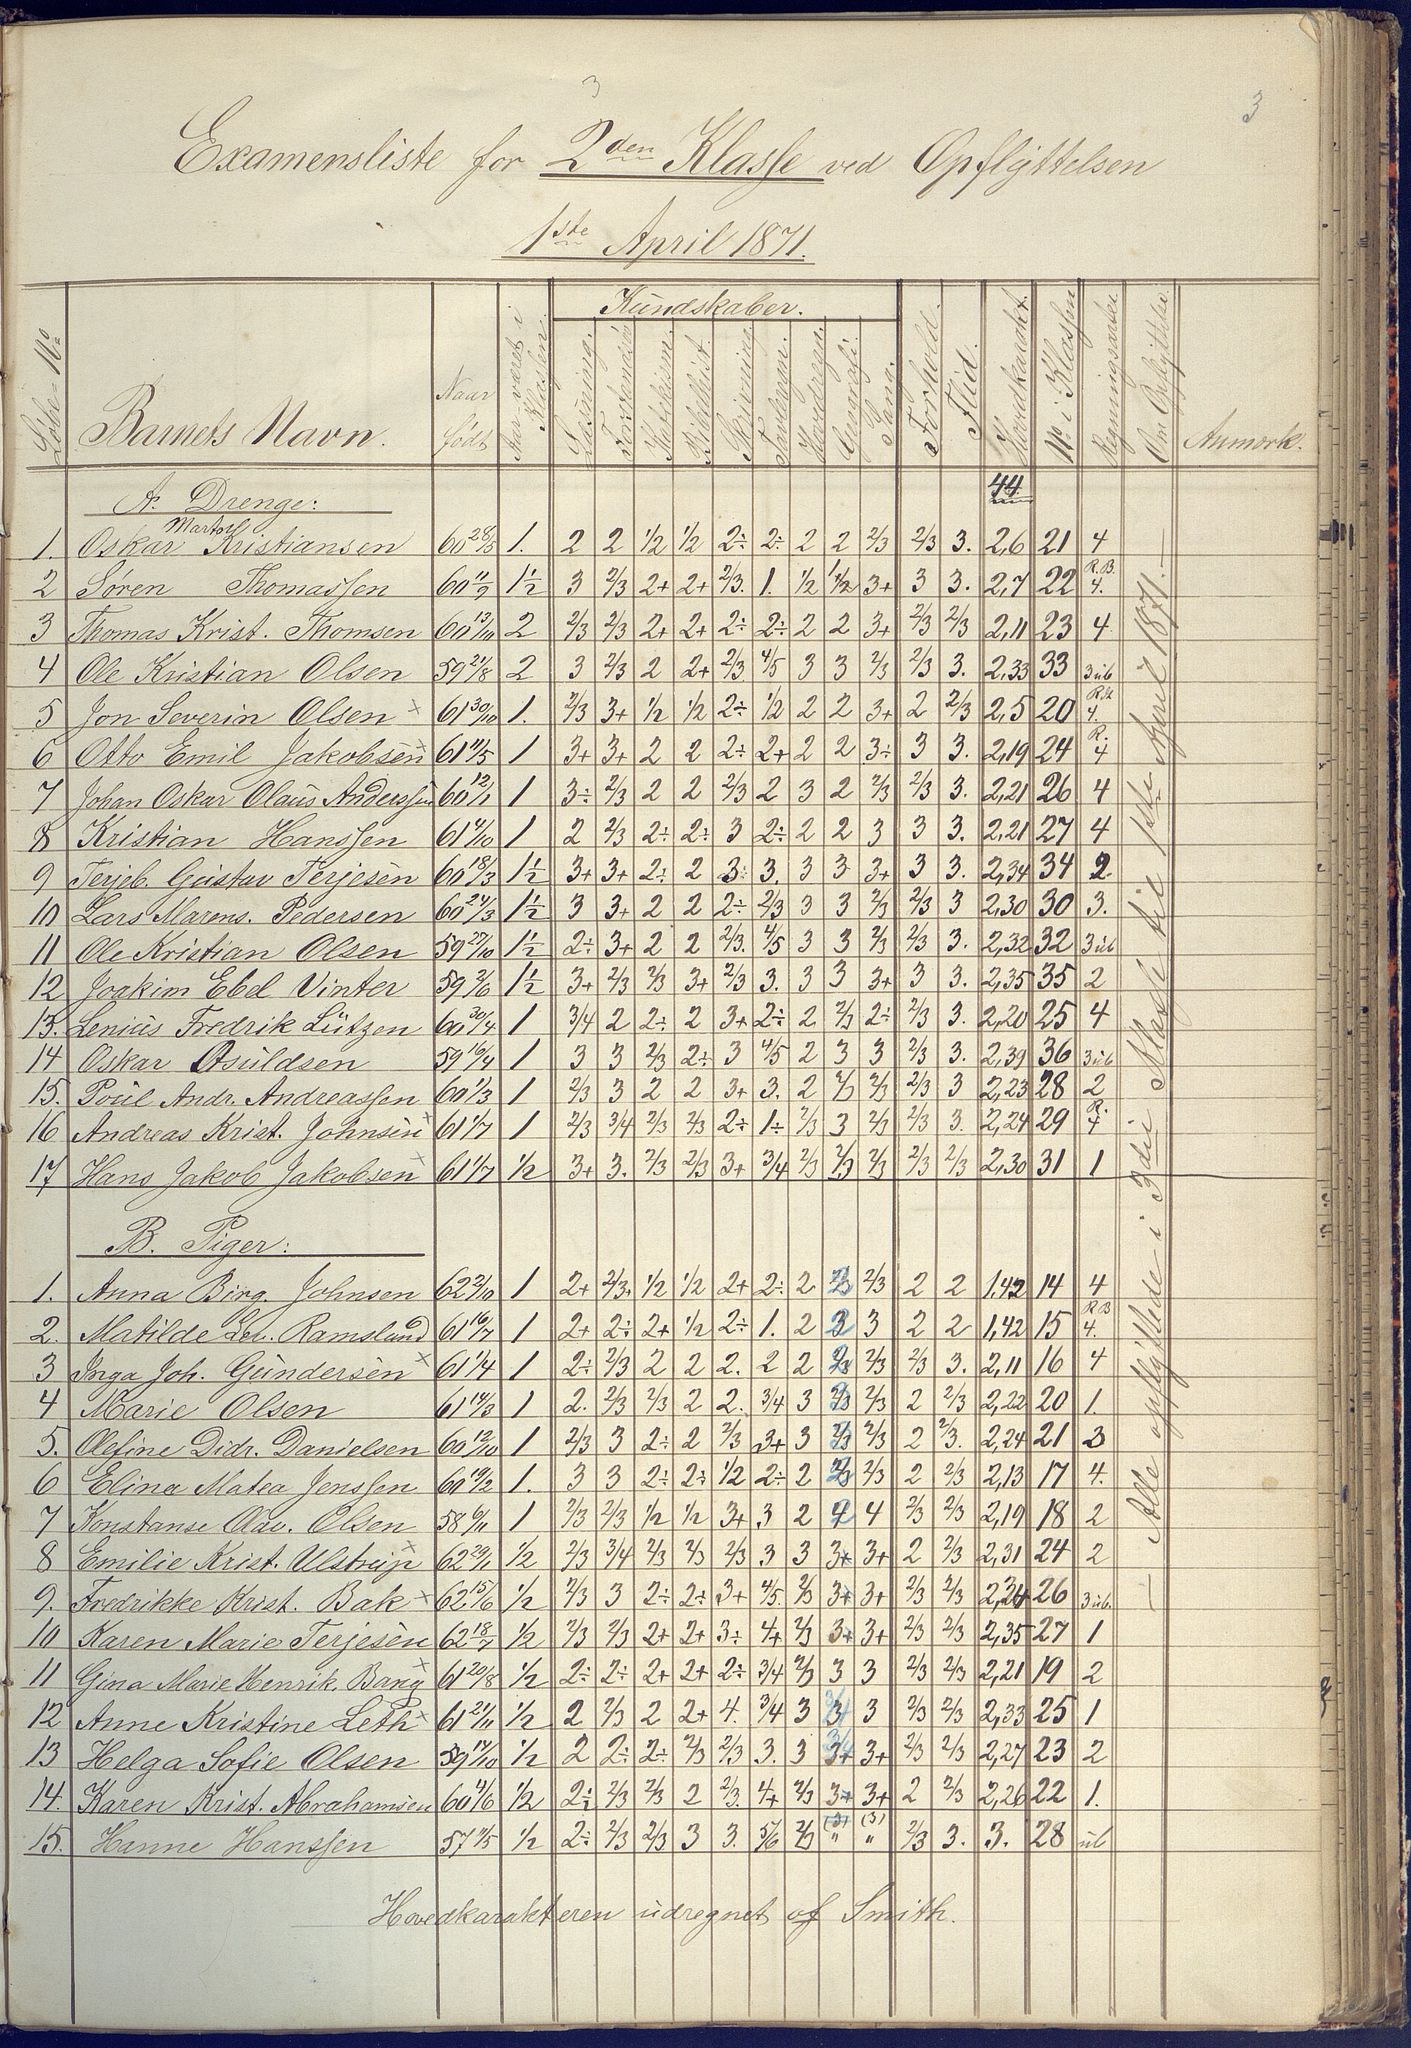 3
3
Examensliste for 2den Klasse ved Opflyttelsen
1ste April 1871.
Løbe-No | Barnets Navn. | Naar født | Aar været i Klassen. | Kundskaber. | Forhold. | Flid. | Hovedkarakt. | No i Klassen | Regningsarter | Om Opflyttelse | Anmærk.
Læsning. | Forstandsø | Katekism. | Bibelhist. | Skrivning | Tavleregn. | Hovedregn. | Geografi. | Sang.
A. Drenge: 44
1. Oskar Martin Kristiansen 60 28/5 1. 2 2 1/2 1/2 2÷ 2÷ 2 2 2/3 2/3 3. 2,6 21 4
2 Søren Thomassen 60 11/9 1½ 3 2/3 2+ 2+ 2/3. 1. 1/2 1/2 3+ 3 3. 2,7 22 R.B. 4.
3 Thomas Krist. Thomsen 60 13/10 2 2/3 2/3 2+ 2+ 2÷ 2÷ 2 2 3+ 2/3 2/3 2,11 23 4
4 Ole Kristian Olsen 59 21/8 2 3 2/3 2 2+ 2/3. 4/5 3 3 2/3 2/3 3. 2,33 33 3 ub
5 Jon Severin Olsen × 61 30/10 1. 2/3 3+ 1/2 1/2 2÷ 1/2 2 2 3+ 2 2/3 2,5 20 4.
6 Otto Emil Jakobsen × 61 11/5 1 3+ 3+ 2 2 2÷ 2+ 2 2 3÷ 3 3. 2,19 24 R. 4
7 Johan Oskar Olaus Anderssen 60 12/1 1 3÷ 2/3 2 2 2/3 2 3 2 2/3 2/3 3. 2,21 26 4
8 Kristian Hanssen 61 4/10 1 2 2/3 2÷ 2÷ 3 2÷ 2 2 3 3 3. 2,21 27 4
9 Terjeb. Gustav Terjesen 60 18/3 1½ 3+ 3+ 2÷ 2 3÷ 3. 3 3 3+ 3 3. 2,34 34 2
10 Lars Marens. Pedersen 60 24/3 1½ 3 3+ 2 2 2÷ 2/3 3 3 2/3 2/3 3 2,30 30 3.
11 Ole Kristian Olsen 59 27/10 1½ 2÷ 3+ 2 2 2/3. 4/5 3 3 2/3 2/3 3. 2,32 32 3 ub
12 Joakim Ebel Vinter 59 2/6 1½ 3+ 2/3 2/3 3+ 2/3 3. 3 3 3+ 3 3. 2,35 35 2
13. Lenius Fredrik Lützen 60 30/4 1 3/4 2 2÷ 2 3+ 2÷ 2 2/3 2÷ 2/3 3. 2,20 25 4
14 Oskar Osuldsen 59 16/4 1 3 3 2/3 2÷ 3 4/5 2 3 3 2/3 3. 2,39 36 3 ub
15. Poul Andr. Andreassen 60 1/3 1 2/3 3 2 2 3+ 3. 2 2/3 2/3 2/3 3 2,23 28 2
16 Andreas Krist. Johnsen × 61 1/7 1 2/3 3/4 2/3 2/3 2÷ 1÷ 2/3 3 2/3 2/3 3. 2,24 29 R. 4
17 Hans Jakob Jakobsen × 61 1/7 1/2 3+ 3. 2/3 2/3 3+ 3/4 2/3 2/3 2/3 2/3 2/3 2,30 31 1
B. Piger:
1. Anna Birg. Johnsen 62 2/10 1 2+ 2/3+ 1/2 1/2 2+ 2÷ 2 2/3 2/3 2 2 1,42 14 4
2. Matilde Ramslund 61 16/7 1 2+ 2÷ 2+ 1/2 2÷ 1. 2 3 3 2 2 1,42 15 R.B 4.
3 Inga Joh. Gundersen × 61 1/4 1 2÷ 2/3 2 2 2. 2 2 2/3 2/3 2/3 3. 2,11 16 4
4 Marie Olsen 61 14/3 1 2. 2/3 2/3 2 2. 3/4 3 2/3 2/3 2 2/3 2,22 20 1.
5. Olefine Didr. Danielsen 60 12/10 1 2/3 3 2÷ 2 2/3 3+ 3 2/3 2/3 2 2/3. 2,24 21 3
6 Elina Matea Jenssen 60 19/2 1. 3 3 2÷ 2÷ 1/2 2÷ 2 2/3 2/3 2 2/3 2,13 17 4.
7 Konstanse Olsen 58 6/11 1 2/3 2/3 1/2 1/2 3+ 3 2 4 4 2/3 2/3 2,19 18 2
8 Emilie Krist. Ulstrup × 62 29/11 1/2 2/3 3/4 2/3 2/3 2/3 3 3 3+ 3+ 2 2/3 2,31 24 2
9. Fredrikke Krist. Bak × 62 15/6 1/2 2/3 3 2÷ 2÷ 3+ 4/5 2/3 3+ 3+ 2/3 2/3 2,34 26 3 ub.
10 Karen Marie Terjesen 62 18/7 1/2 2/3 2/3 2+ 2+ 3÷ 4+ 2/3 3+ 3+ 2/3 2/3 2,35 27 1
11 Gina Marie Henrik. Bang × 61 20/8 1/2 2÷ 2÷ 2+ 2+ 2÷ 3/4 2/3 3 3 2/3 2/3 2,21 19 2
12 Anne Kristine Leth × 61 21/11 1/2 2 2/3 2 2+ 4. 3/4 3 3/4 3 2/3 2/3 2,33 25 1
13 Helga Sofie Olsen 59 17/10 1/2 2 2÷ 2÷ 2/3 2/3 3. 3 3+ 3+ 2/3 2/3 2,27 23 2
14. Karen Krist. Abrahamsen 60 4/6 1/2 2÷ 2/3 2/3 2 2/3. 4+ 2/3 3+ 3+ 2 2/3 2,26 22 1.
15. Hanne Hanssen 57 11/5 1/2 2÷ 2/3 2/3 3 3. 5/6 2/3 (3) " (3) " 2/3 3. 3. 28 ub
— Alle opflyttede i 3die Klasse til 1ste April 1871. —
Hovedkarakteren udregnet af Smith.